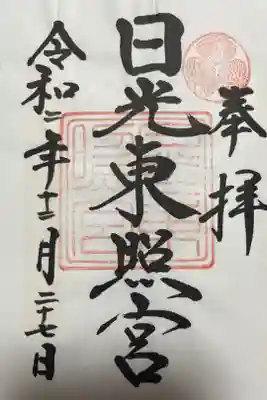 奉拝
日光東照宮
令和二年十二月二十七日